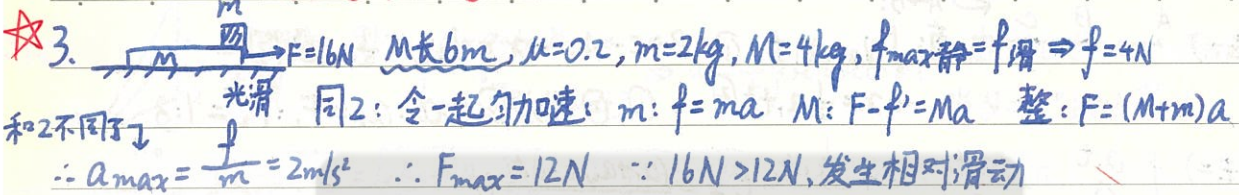 m
☆3. M m →F=16N M长6m, μ=0.2, m=2kg, M=4kg, fmax静=f滑 ⇒ f=4N
光滑 同2: 令一起匀加速: m: f=ma M: F-f'=Ma 整: F=(M+m)a
和2不同了↴
∴ amax = f/m = 2m/s² ∴ Fmax=12N ∵ 16N>12N, 发生相对滑动